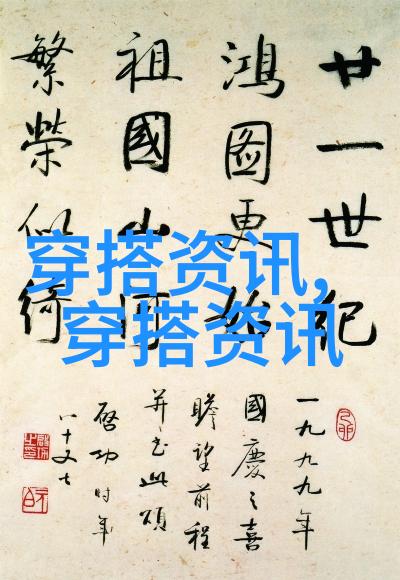 廿一世紀
鴻圖更始
祖國山河
繁榮似綺
一九九九年
國慶之喜
瞻望前程
并書此頌
啓功時年
八十又七
穿搭资讯,
穿搭资讯